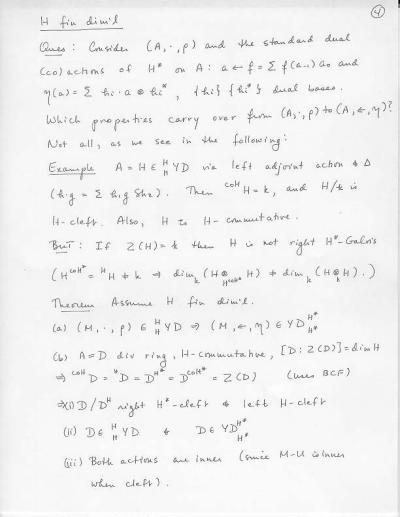 4
H fin dim'l
Ques: Consider (A, ·, ρ) and the standard dual
(co)actions of H* on A: a ← f = Σ f(a₋₁) a₀ and
η(a) = Σ hᵢ · a ⊗ hᵢ*, {hᵢ} {hᵢ*} dual bases.
Which properties carry over from (A, ·, ρ) to (A, ←, η)?
Not all, as we see in the following:
Example A = H ∈ ᴴ_H YD via left adjoint action & Δ
(h·g = Σ h₁ g Sh₂). Then ᶜᵒᴴH = k, and H/k is
H-cleft. Also, H is H-commutative.
But: If Z(H) = k then H is not right H*-Galois
(Hᶜᵒᴴ* = ᴴH = k ⇒ dim_k (H ⊗_{Hᶜᵒᴴ*} H) ≠ dim_k (H ⊗_k H).)
Theorem Assume H fin dim'l.
(a) (M, ·, ρ) ∈ ᴴ_H YD ⇒ (M, ←, η) ∈ YD^{H*}_{H*}
(b) A = D div ring, H-commutative, [D : Z(D)] = dim H
⇒ ᶜᵒᴴD = ᴴD = D^{H*} = D^{coH*} = Z(D) (uses BCF)
⇒ (i) D/Dᴴ right H*-cleft & left H-cleft
(ii) D ∈ ᴴ_H YD & D ∈ YD^{H*}_{H*}
(iii) Both actions are inner (since M-U is inner
when cleft).